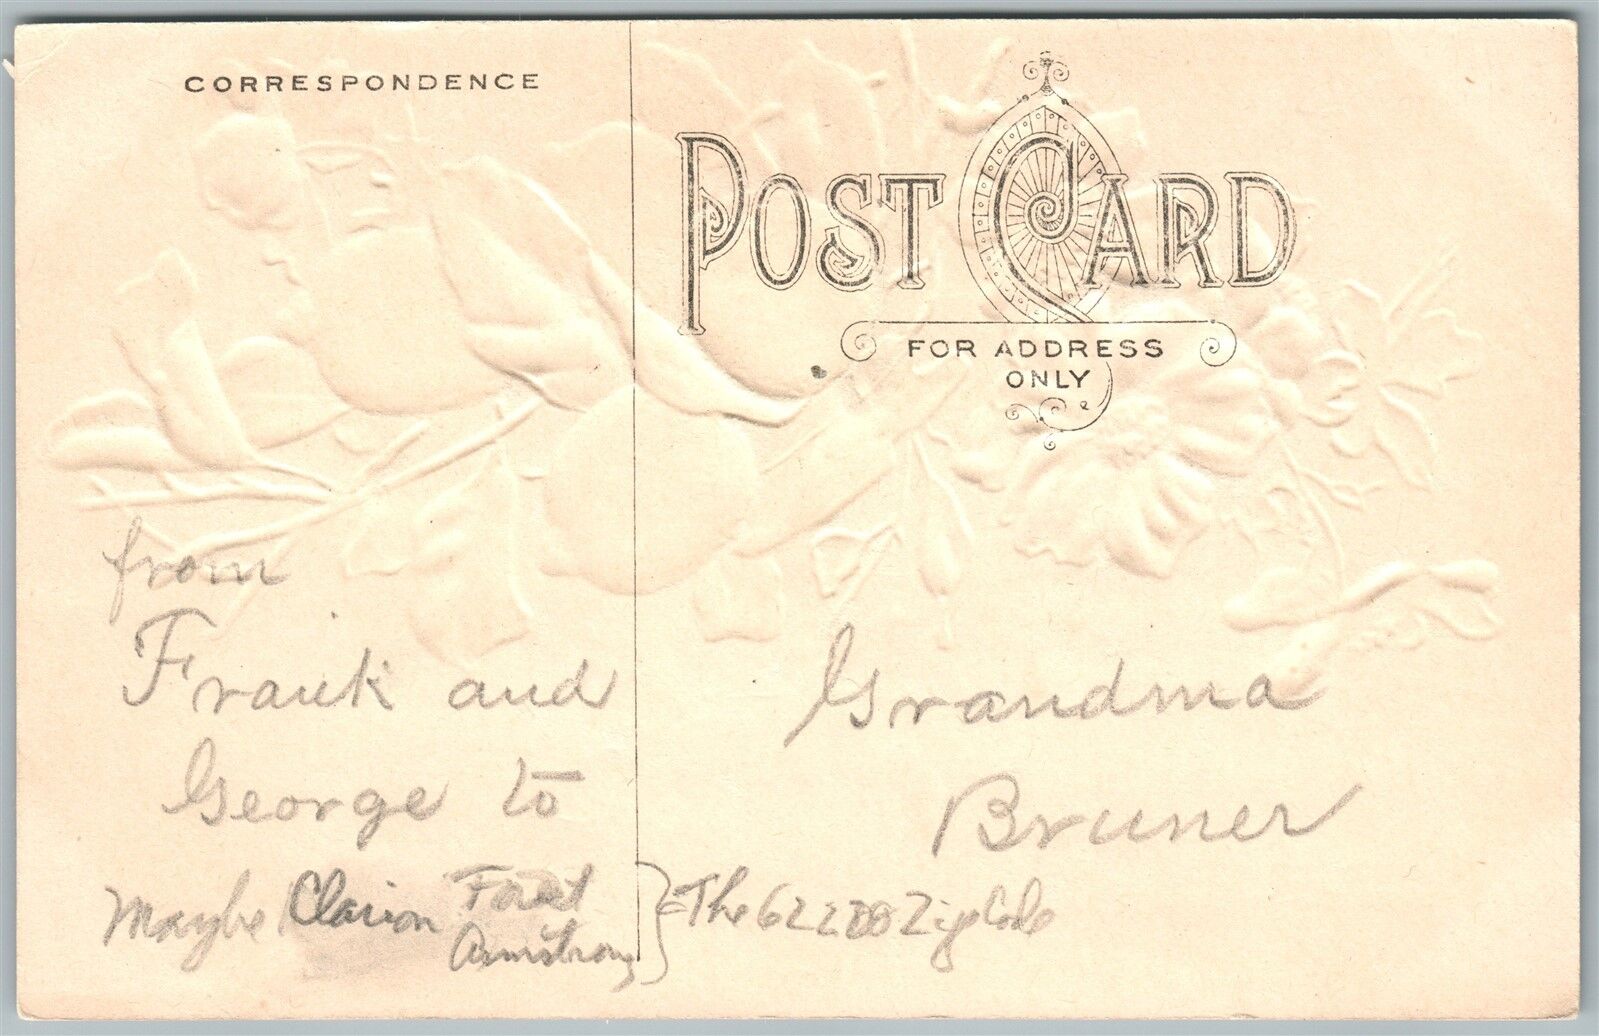 CORRESPONDENCE
POST CARD
FOR ADDRESS
ONLY
from
Frank and
George to
Grandma
Bruner
Maybe Clarion Forest
Armstrong
The Zip Code